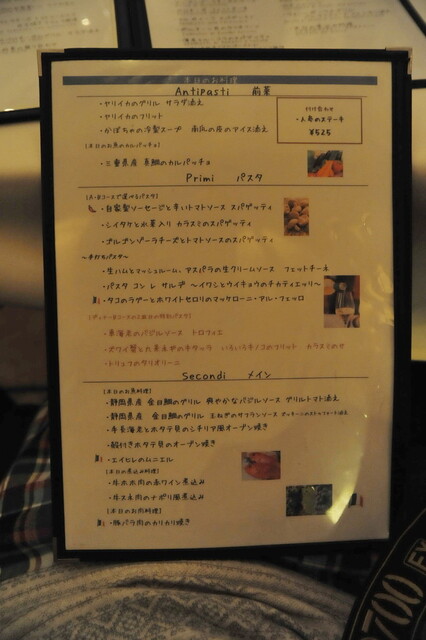 本日のお料理
Antipasti 前菜
・ヤリイカのグリル サラダ添え
・ヤリイカのフリット
・かぼちゃの冷製スープ 南瓜の皮のアイス添え
付け合わせ
・人参のステーキ
¥525
(本日のお魚のカルパッチョ)
・三重県産 真鯛のカルパッチョ
Primi パスタ
(A・Bコースで選べるパスタ)
・自家製ソーセージと辛いトマトソース スパゲッティ
・シイタケと水菜入り カラスミのスパゲッティ
・ゴルゴンゾーラチーズとトマトソースのスパゲッティ
~手打ちパスタ~
・生ハムとマッシュルーム、アスパラの生クリームソース フェットチーネ
・パスタ コン レ サルデ ~イワシとウイキョウのチカティエッリ~
・タコのラグーとホワイトセロリのマッケローニ・アル・フェッロ
・車海老のバジルソース トロフィエ
・ズワイ蟹と
・トリュフのタリオリーニ
Secondi メイン
(本日のお魚料理)
・静岡県産 金目鯛のグリル 爽やかなバジルソース グリルトマト添え
・静岡県産 金目鯛のグリル 玉ねぎのサフランソース
・手長海老とホタテ貝のシチリア風オーブン焼き
・殻付きホタテ貝のオーブン焼き
・エイヒレのムニエル
(本日の煮込み料理)
・牛ホホ肉の赤ワイン煮込み
・牛スネ肉のナポリ風煮込み
(本日のお肉料理)
・豚バラ肉のカリカリ焼き
700 EX